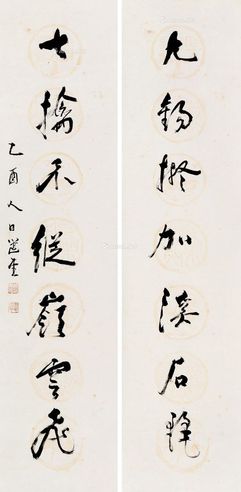 九錫擬加溪石醜
七擒不縱嶺雲飛
乙酉人日